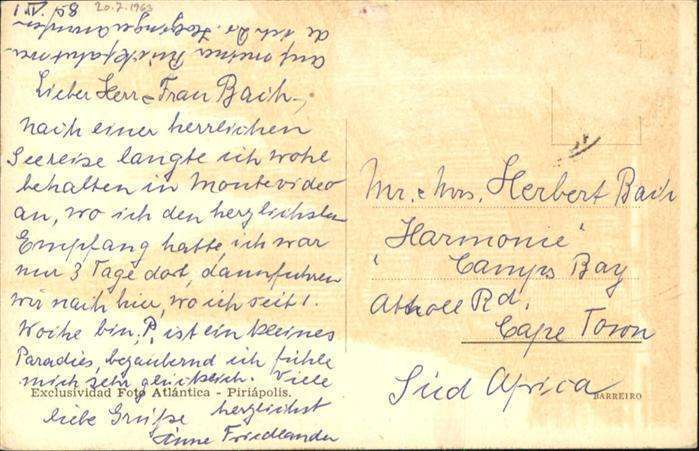 1. IV. 58
20.2.1963
auf meiner Rückfahrt
Lieber Herr & Frau Bach,
nach einer herrlichen
Seereise langte ich wohl
behalten in Montevideo
an, wo ich den herzlichsten
Empfang hatte, ich war
nur 3 Tage dort, dann fuhren
wir nach hier, wo ich seit 1.
Woche bin. P. ist ein kleines
Paradies, bezaubernd ich fühle
mich sehr glücklich. Viele
liebe Grüße herzlichst
Friedlander
Exclusividad Foto Atlántica - Piriápolis.
Mr. & Mrs. Herbert Bach
"Harmonie"
Camps Bay
Atholl Rd.
Cape Town
Süd Africa
BARREIRO